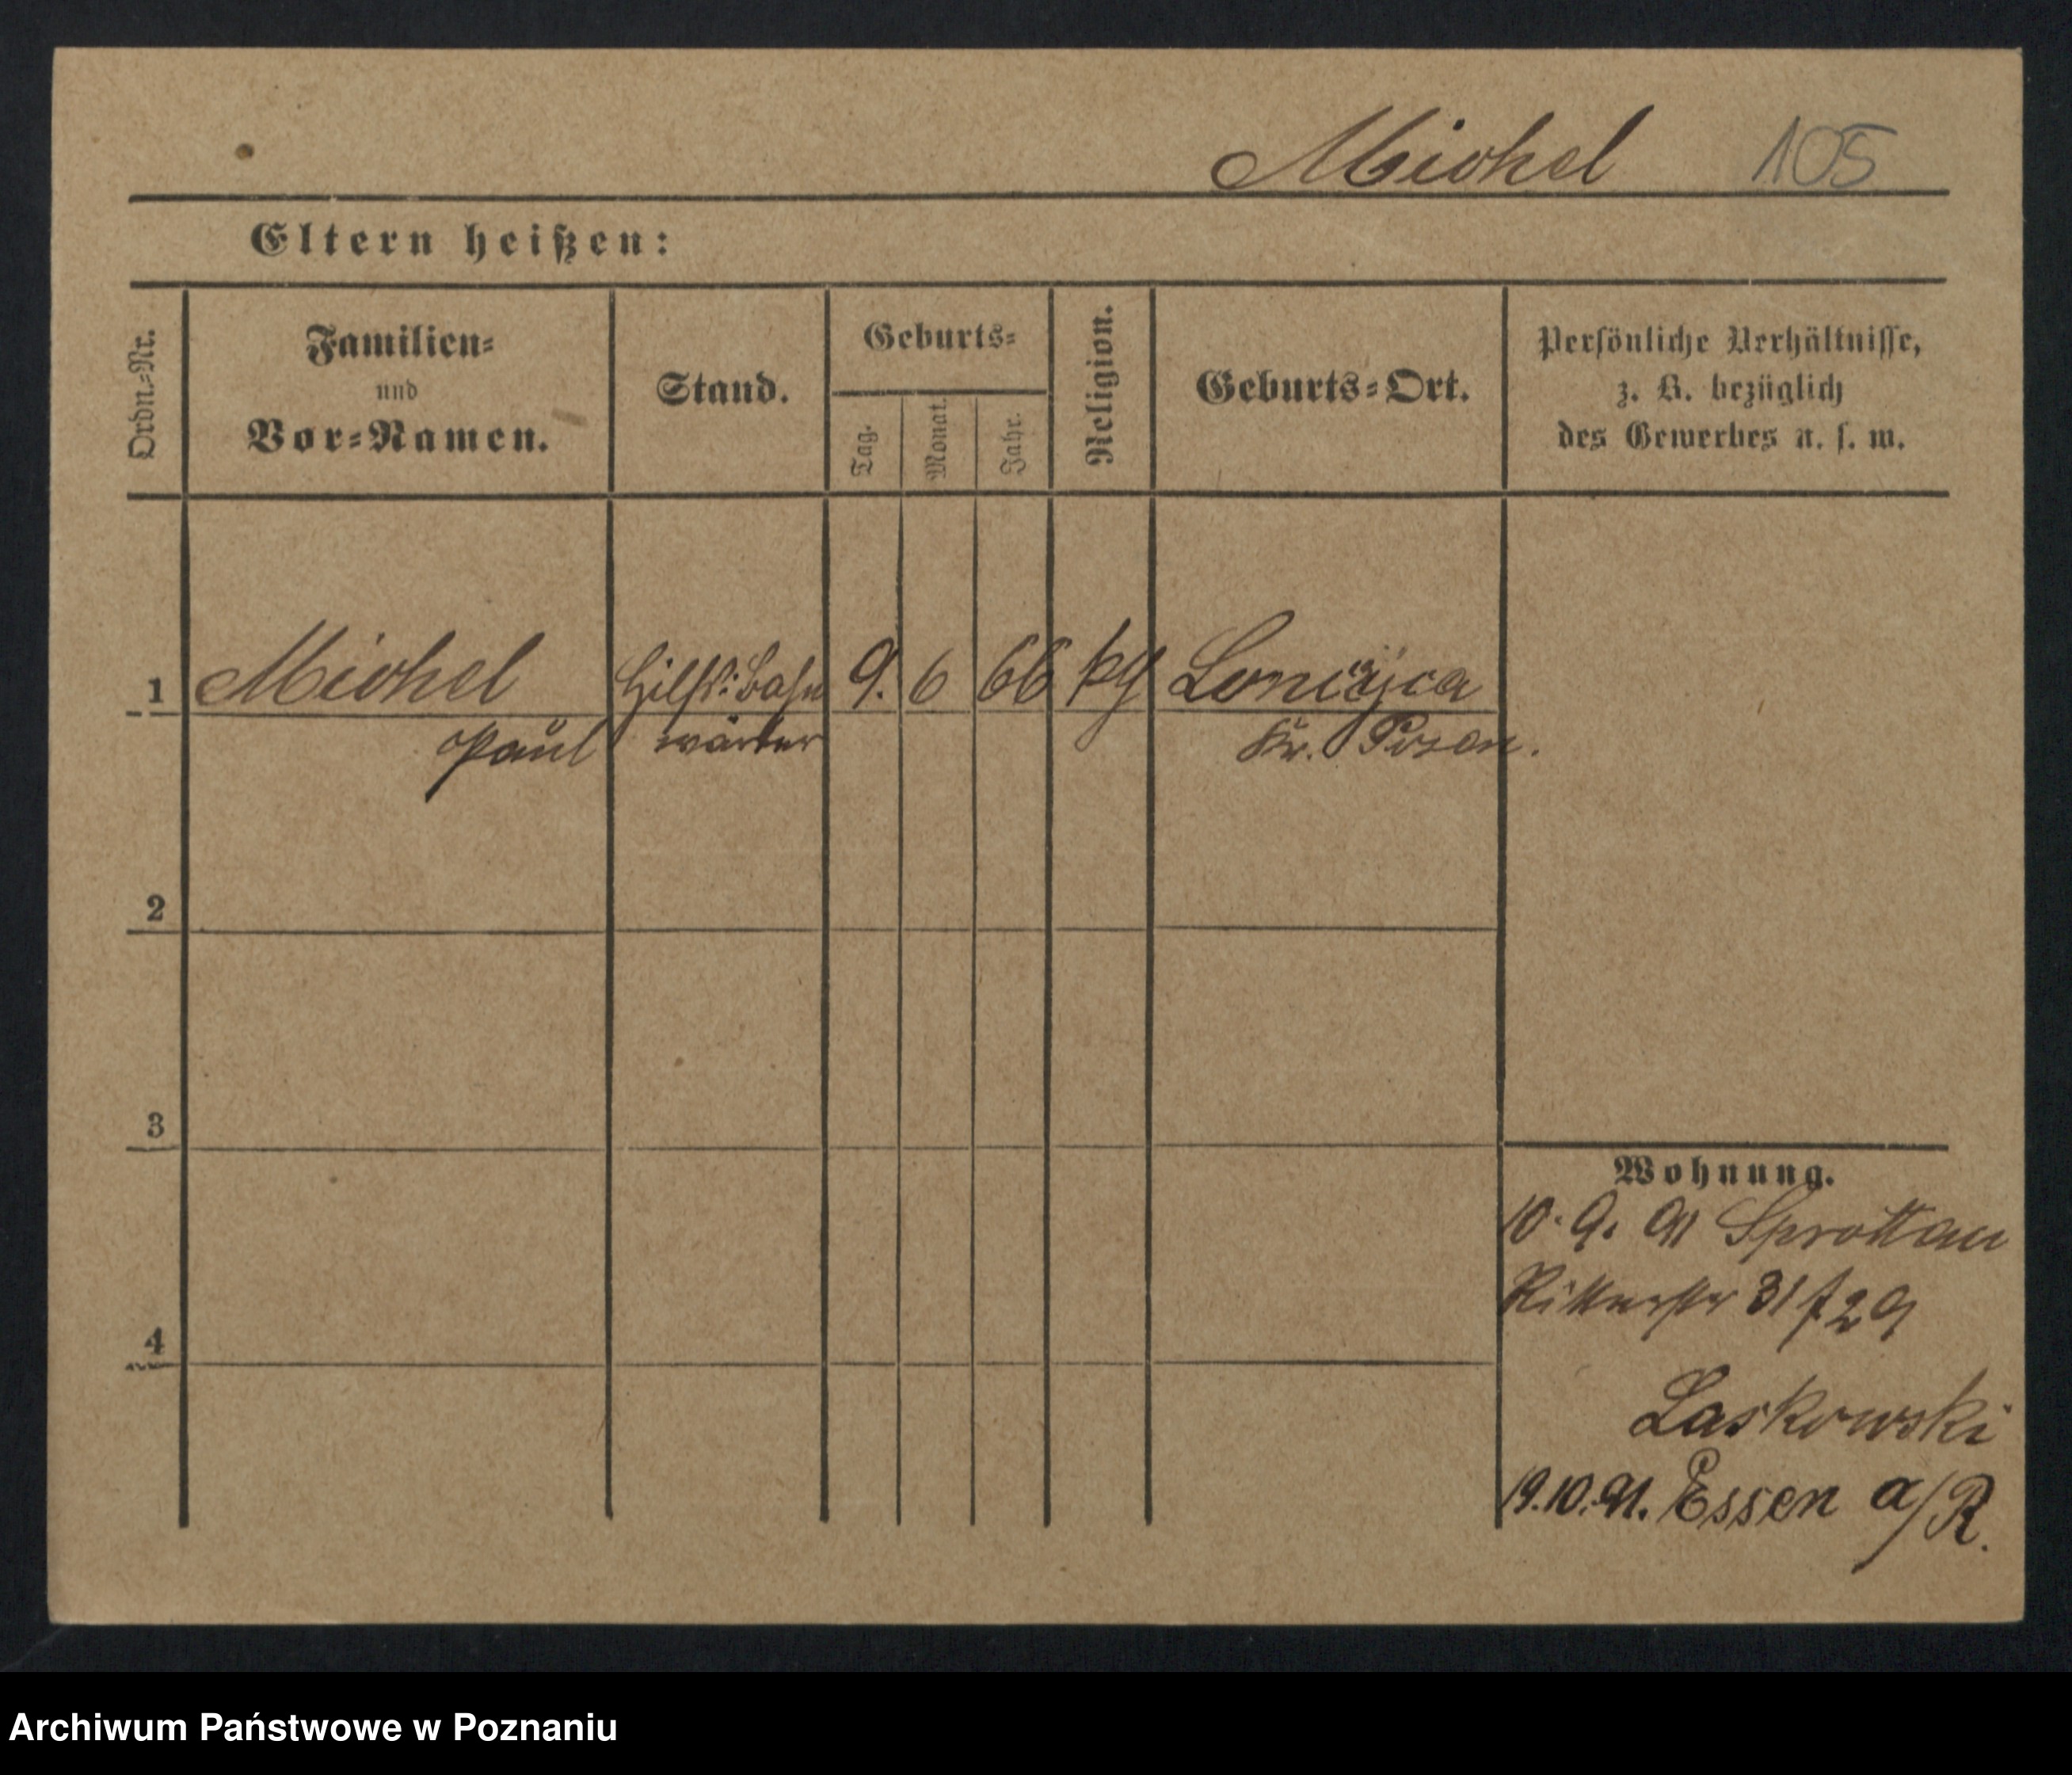 Michel 105
Eltern heißen:
Ordn.-Nr.
Familien-
und
Vor-Namen.
Stand.
Geburts-
Tag.
Monat.
Jahr.
Religion.
Geburts-Ort.
Persönliche Verhältnisse,
z. B. bezüglich
des Gewerbes u. s. w.
1 Michel Hilfs: Bahn 9. 6 66 kg
Paul wärter Kr. Posen.
2
3
4
Wohnung.
10. 9. 91 Sprottau
Ritterstr 31
Laskowski
19.10.91. Essen a/R.
Archiwum Państwowe w Poznaniu